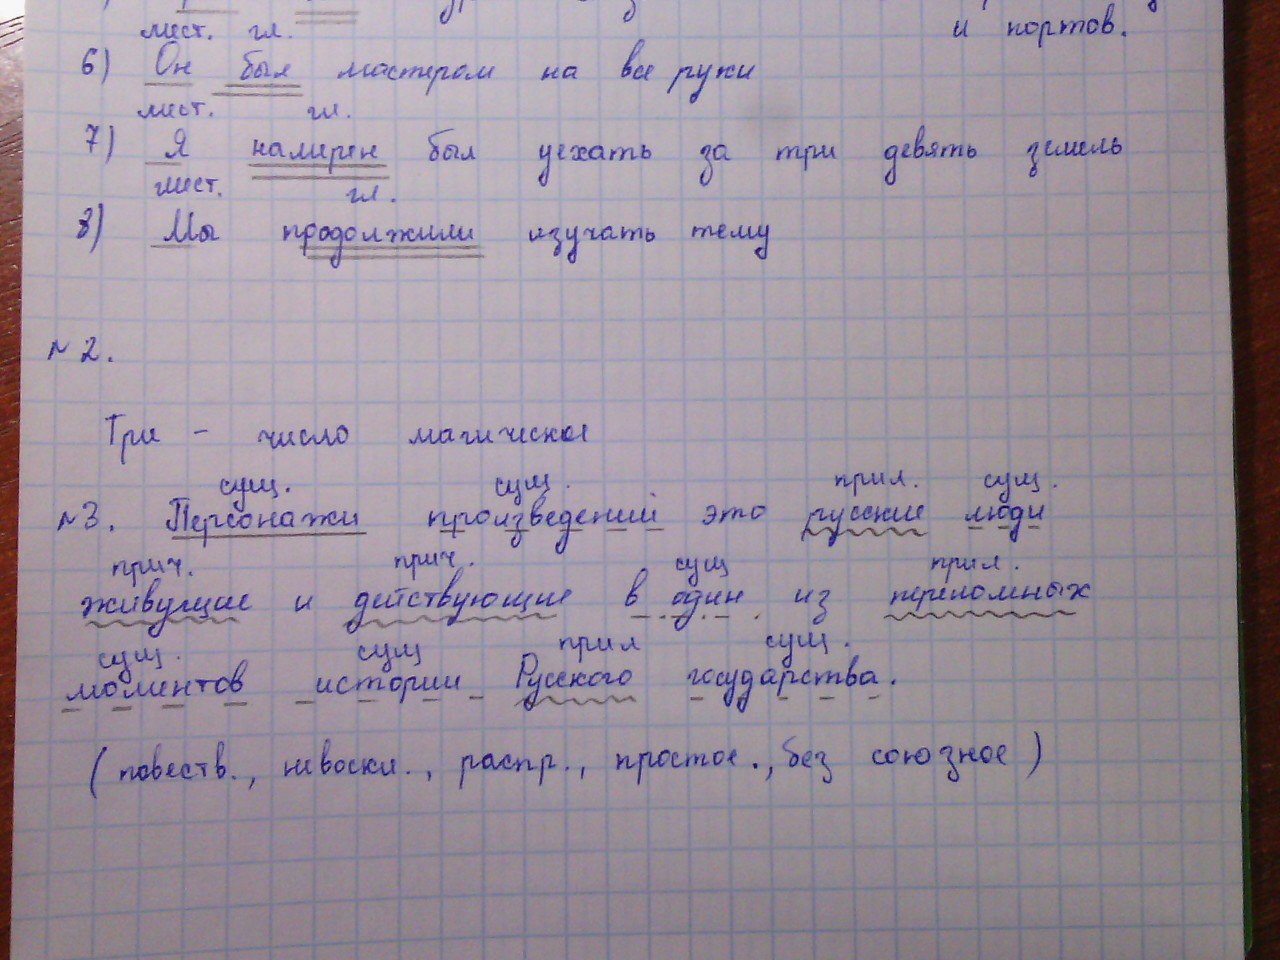 мест. гл.
и портов.
6) Он был мастером на все руки
мест. гл.
7) Я намерен был уехать за три девять земель
мест. гл.
8) Мы продолжили изучать тему
№2.
Три - число магическое
сущ. сущ. прил. сущ.
№3. Персонажи произведений это русские люди
прич. прич. сущ прил.
живущие и действующие в один из переломных
сущ. сущ прил сущ.
моментов истории Русского государства.
(повеств., невоскл., распр., простое., без союзное)